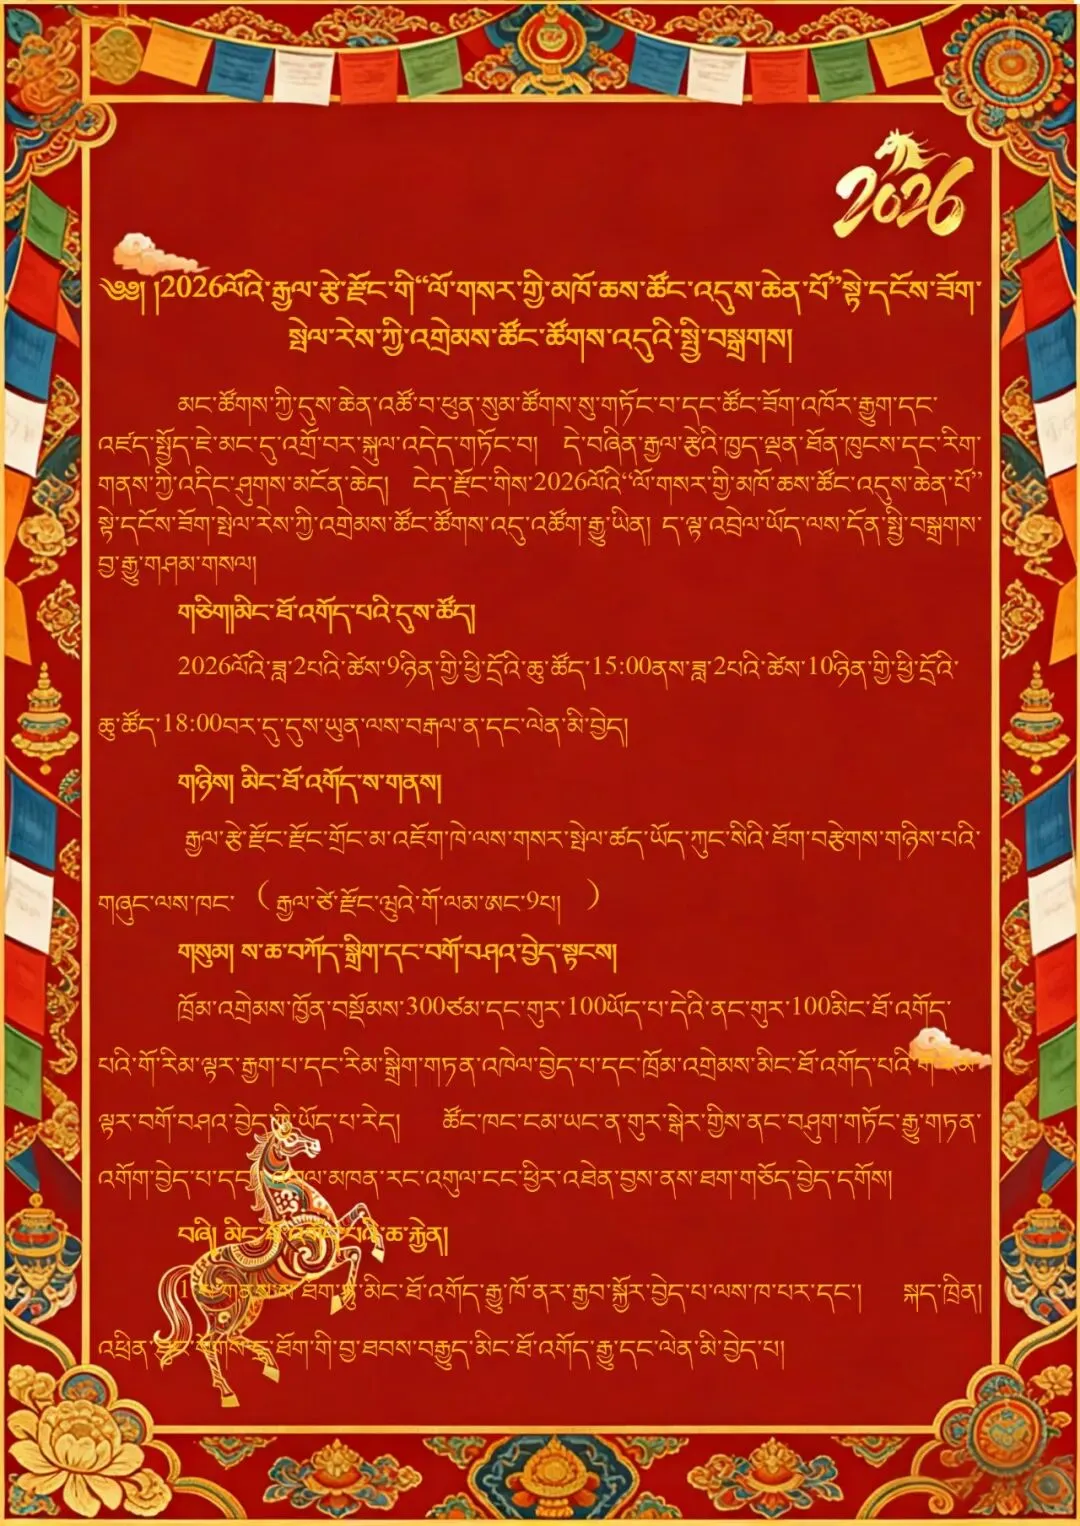 2026
༄༅། །2026ལོའི་རྒྱལ་རྩེ་རྫོང་གི“ལོ་གསར་གྱི་མཁོ་ཆས་ཚོང་འདུས་ཆེན་པོ”སྟེ་དངོས་ཟོག་
སྤེལ་རེས་ཀྱི་འགྲེམས་ཚོང་ཚོགས་འདུའི་སྤྱི་བསྒྲགས།
མང་ཚོགས་ཀྱི་དུས་ཆེན་འཚོ་བ་ཕུན་སུམ་ཚོགས་སུ་གཏོང་བ་དང་ཚོང་ཟོག་འཁོར་རྒྱུག་དང་
འཛད་སྤྱོད་ཇེ་མང་དུ་འགྲོ་བར་སྐུལ་འདེད་གཏོང་བ། དེ་བཞིན་རྒྱལ་རྩེའི་ཁྱད་ལྡན་ཐོན་ཁུངས་དང་རིག་
གནས་ཀྱི་འདིང་ཤུགས་མངོན་ཆེད། ངེད་རྫོང་གིས་2026ལོའི“ལོ་གསར་གྱི་མཁོ་ཆས་ཚོང་འདུས་ཆེན་པོ”
སྟེ་དངོས་ཟོག་སྤེལ་རེས་ཀྱི་འགྲེམས་ཚོང་ཚོགས་འདུ་འཚོག་རྒྱུ་ཡིན། ད་ལྟ་འབྲེལ་ཡོད་ལས་དོན་སྤྱི་བསྒྲགས་
བྱ་རྒྱུ་གཤམ་གསལ།
གཅིག།མིང་ཐོ་འགོད་པའི་དུས་ཚོད།
2026ལོའི་ཟླ་2པའི་ཚེས་9ཉིན་གྱི་ཕྱི་དྲོའི་ཆུ་ཚོད་15:00ནས་ཟླ་2པའི་ཚེས་10ཉིན་གྱི་ཕྱི་དྲོའི་
ཆུ་ཚོད་18:00བར་དུ་དུས་ཡུན་ལས་བརྒལ་ན་དང་ལེན་མི་བྱེད།
གཉིས། མིང་ཐོ་འགོད་ས་གནས།
རྒྱལ་རྩེ་རྫོང་རྫོང་གྲོང་མ་འཇོག་ཁེ་ལས་གསར་སྤེལ་ཚད་ཡོད་ཀུང་སིའི་ཐོག་བརྩེགས་གཉིས་པའི་
གཞུང་ལས་ཁང་（རྒྱལ་ཙེ་རྫོང་ཝུའེ་གོ་ལམ་ཨང་9པ། ）
གསུམ། ས་ཆ་བཀོད་སྒྲིག་དང་བགོ་བཤའ་བྱེད་སྟངས།
ཁྲོམ་འགྲེམས་ཁྱོན་བསྡོམས་300ཙམ་དང་གུར་100ཡོད་པ་དེའི་ནང་གུར་100མིང་ཐོ་འགོད་
པའི་གོ་རིམ་ལྟར་རྒྱག་པ་དང་རིམ་སྒྲིག་གཏན་འཁེལ་བྱེད་པ་དང་ཁྲོམ་འགྲེམས་མིང་ཐོ་འགོད་པའི་གོ་རིམ་
ལྟར་བགོ་བཤའ་བྱེད་ཀྱི་ཡོད་པ་རེད། ཚོང་ཁང་ངམ་ཡང་ན་གུར་སྒེར་གྱིས་ནང་བཤུག་གཏོང་རྒྱུ་གཏན་
འགོག་བྱེད་པ་དང་ མཁན་རང་འགུལ་ངང་ཕྱིར་འཐེན་བྱས་ནས་ཐག་གཅོད་བྱེད་དགོས།
བཞི། མིང་ཐོ་འགོད་པའི་ཆ་རྐྱེན།
ཐོག་ཏུ་མིང་ཐོ་འགོད་རྒྱུ་ཁོ་ནར་རྒྱབ་སྐྱོར་བྱེད་པ་ལས་ཁ་པར་དང་། སྐད་ཁྲིན།
འཕྲིན་ཐུང་སོགས་དྲྭ་ཐོག་གི་བྱ་ཐབས་བརྒྱུད་མིང་ཐོ་འགོད་རྒྱུ་དང་ལེན་མི་བྱེད་པ།